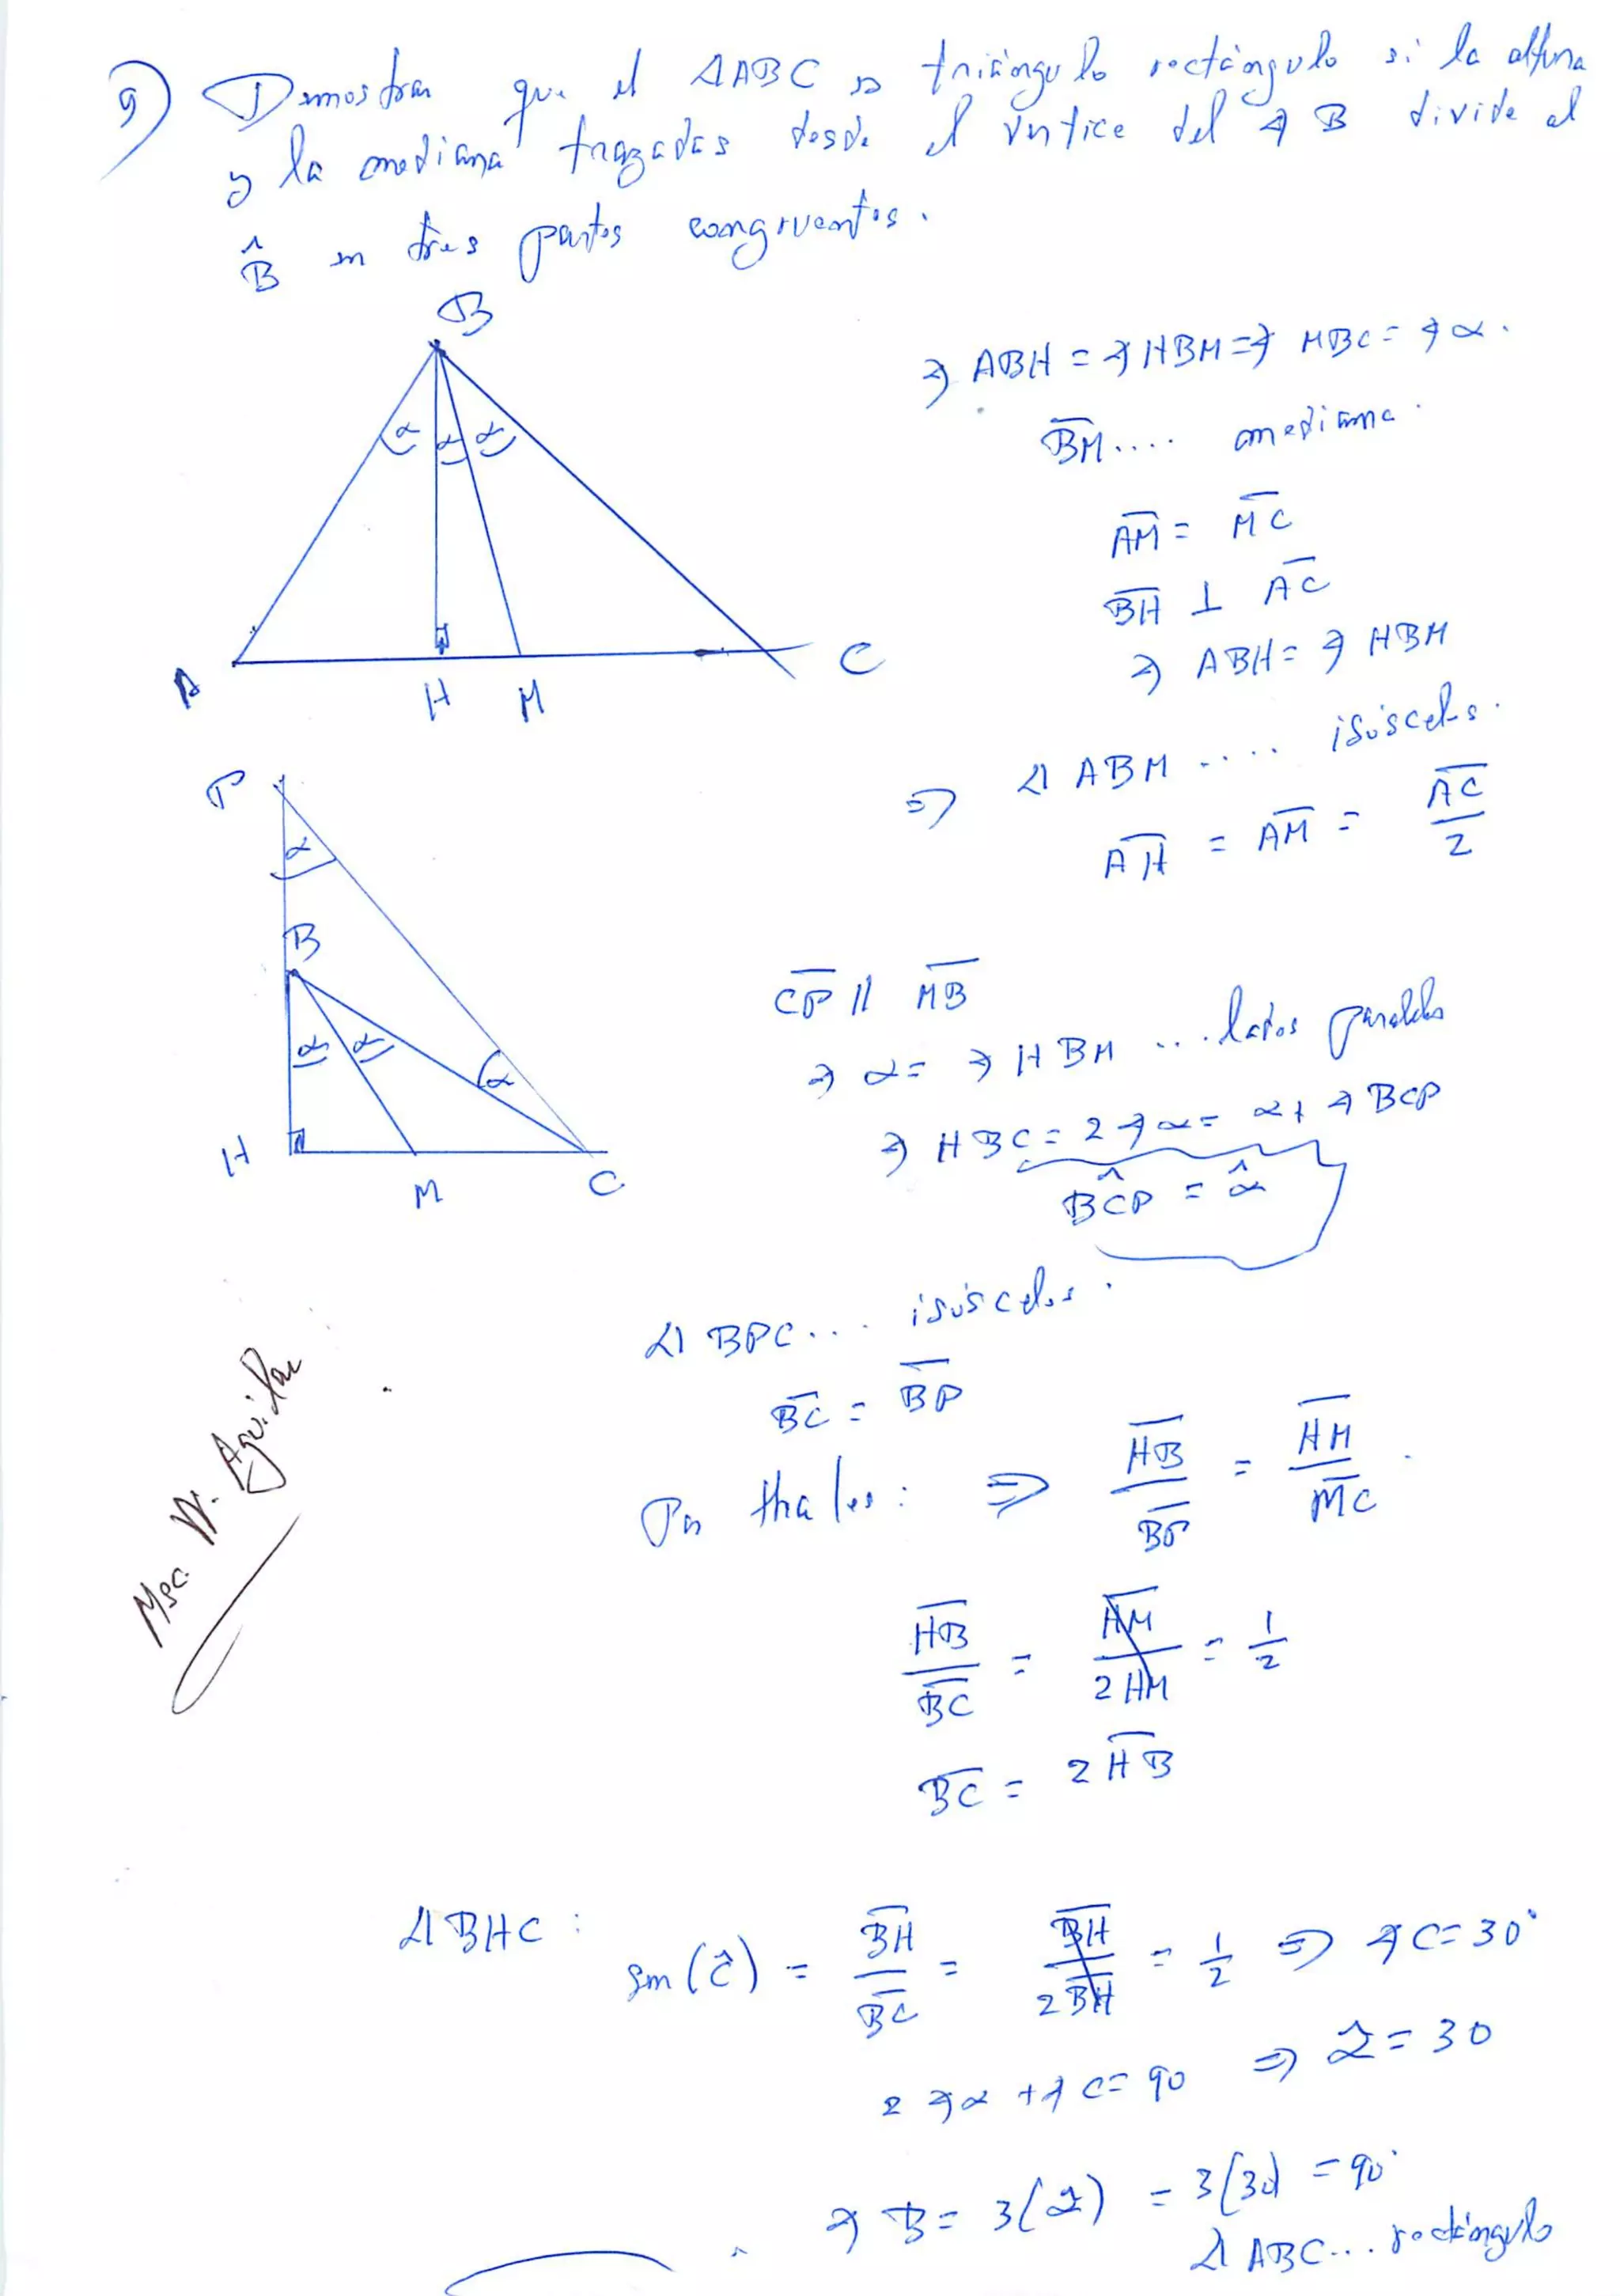 9) Demostrar que el ΔABC es triángulo rectángulo si la altura
y la mediana trazadas desde el vértice del ∢ B divide al
B̂ en tres partes congruentes.
B
∢ ABH = ∢ HBM = ∢ MBC = ∢ α.
α α α
B̅M̅ .... mediana.
A̅M̅ = M̅C̅
B̅H̅ ⊥ A̅C̅
∢ ABH = ∢ HBM
A H M C
Δ ABM ..... isósceles.
⇒ A̅H̅ = A̅M̅ = A̅C̅/2
P
α
B
α α α
H M C
C̅P̅ // M̅B̅
∢ α = ∢ HBM ... lados paralelos
∢ HBC = 2 ∢ α = α + ∢ BCP
BĈP = α̂
Δ BPC... isósceles.
B̅C̅ = B̅P̅
Por thales: ⇒ H̅B̅/B̅P̅ = H̅M̅/M̅C̅.
H̅B̅/B̅C̅ = H̅M̅/2HM = 1/2
B̅C̅ = 2 H̅B̅
Msc. W. Aguilar
Δ BHC: sen(ĉ) = B̅H̅/B̅C̅ = B̅H̅/2B̅H̅ = 1/2 ⇒ ∢ C = 30°
2 ∢ α + ∢ C = 90 ⇒ α̂ = 30
∢ B = 3(α̂) = 3(30) = 90°
Δ ABC... rectángulo